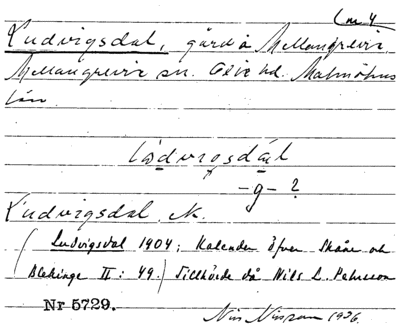 Lm 4
Ludvigsdal, gård å Mellangrevie
Mellangrevie sn. Oxie hd. Malmöhus
län
-g- ?
Ludvigsdal Nr.
(Ludvigsdal 1904; Kalender öfver Skåne och
Blekinge II: 49.) Tillhörde då Nils L. Pehrsson
Nr 5729.
1936.